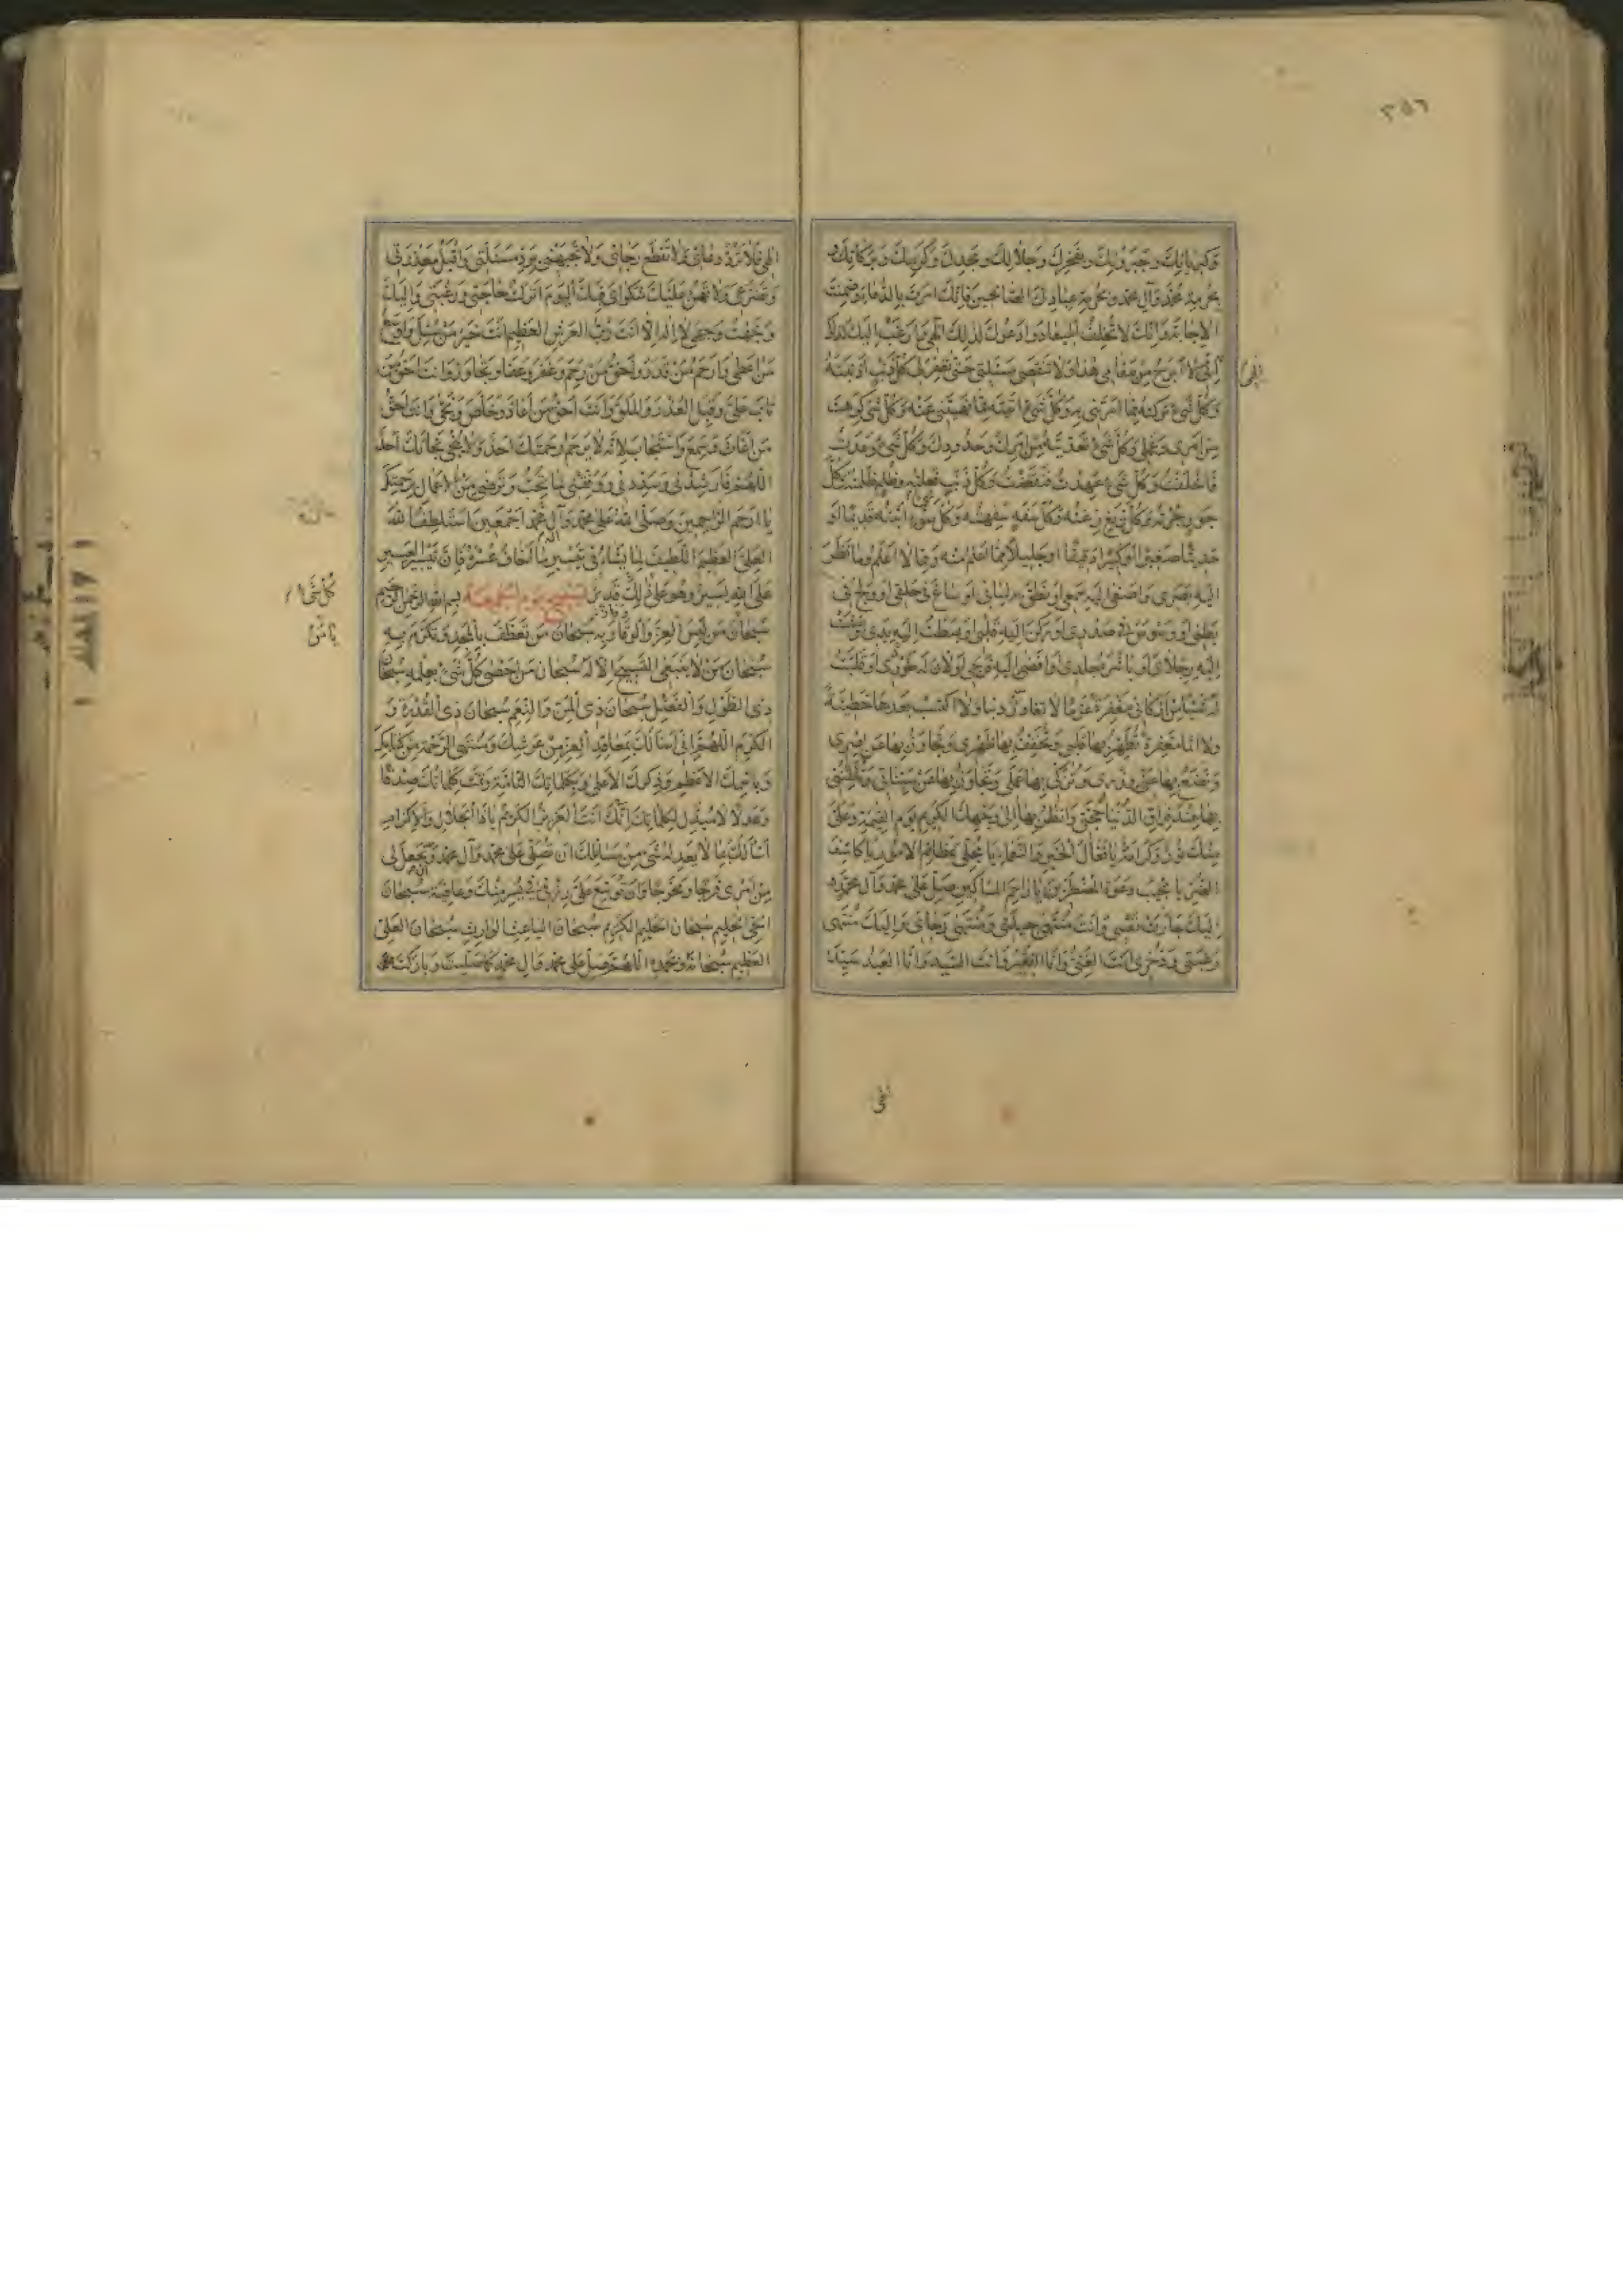 ٣٥٦
وكبريائك وجبروتك وفخرك وجلالك ومجدك وكرمك وبركاتك
بحرمة محمد وآل محمد وبحرمة عبادك الصالحين فانك امرت بالدعاء وضمنت
الاجابة وانك لا تخلف الميعاد وادعوك لذلك الهي وارغب اليك لذلك
اني لا ابرح من مقامي هذا ولا تنقضي مسئلتي حتى تغفر لي كل ذنب اذنبته
وكل شيء تركته مما امرتني به وكل شيء اتيته مما نهيتني عنه وكل شيء كرهت
من امري وعملي وكل شيء تعديته من امرك وحدودك وكل شيء وعدت
فاخلفت وكل شيء عهدت فنقضت وكل ذنب فعلته وظلم ظلمته وكل
جور جرته وكل زيغ زغته وكل سفه سفهته وكل سوء اتيته قديما او
حديثا صغيرا او كبيرا دقيقا او جليلا مما اعلم منه ومما لا اعلم وما نظر
اليه بصري واصغى اليه سمعي او نطق به لساني او ساغ في حلقي او ولج في
بطني او وسوس في صدري او ركن اليه قلبي او بسطت اليه يدي او مشت
اليه رجلاي او باشره جلدي او افضى اليه فرجي او لان له طوري او قلبت
له شيئا من اركاني مغفرة عزما لا تغادر ذنبا ولا اكتسب بعدها خطيئة
ولا اثما مغفرة تطهر بها قلبي وتخفف بها ظهري وتجاوز بها عن اصري
وتضع بها عني وزري وتزكي بها عملي وتجاوز بها عن سيئاتي وتلقنني
بها عند فراق الدنيا حجتي وانظر بها الى وجهك الكريم يوم القيمة وعلي
منك نور وكرامة يا فعال الخير والنعماء يا مجلي عظائم الامور يا كاشف
الضر يا مجيب دعوة المضطرين يا راحم المساكين صل على محمد وآل محمد
اليك جأرت نفسي وانت منتهى حيلتي ومنتهى رجائي واليك منتهى
رغبتي وذخري انت الغني وانا الفقير وانت السيد وانا العبد
الهي فلا ترد دعائي ولا تقطع رجائي ولا تجبهني برد مسئلتي واقبل معذرتي
وتضرعي ولا تهن عليك شكواي فبك اليوم انزلت حاجتي ورغبتي واليك
وجهت وجهي لا اله الا انت رب العرش العظيم انت خير من سئل واوسع
من اعطى وارحم من قدر واحق من رحم وغفر وعفا وتجاوز وانت احق من
تاب علي وقبل العذر والملق وانت احق من اعاذ وخلص ونجى وانت احق
من اغاث وسمع واستجاب لانه لا يرحم رحمتك احد ولا ينجي نجاتك احد
اللهم فارشدني وسددني ووفقني لما تحب وترضى من الاعمال برحمتك
يا ارحم الراحمين وصلى الله على محمد وآل محمد اجمعين استلطف الله
العلي العظيم اللطيف لما يشاء في تيسير ما اخاف عسره فان تيسير العسير
على الله يسير وهو على ذلك قدير تسبيح يوم الجمعة بسم الله الرحمن الرحيم
سبحان من لبس العز والوقار به سبحان من تعطف بالمجد وتكرم به
سبحان من لا ينبغي التسبيح الا له سبحان من احصى كل شيء بعلمه سبحان
ذي الطول والفضل سبحان ذي المن والنعم سبحان ذي القدرة و
الكرم اللهم اني اسألك بمعاقد العز من عرشك ومنتهى الرحمة من كتابك
وباسمك الاعظم وذكرك الاعلى وبكلماتك التامة وتمت كلماتك صدقا
وعدلا لا مبدل لكلماتك انك انت العزيز الكريم يا ذا الجلال والاكرام
اسألك بما لا يعدله شيء من مسائلك ان تصلي على محمد وآل محمد وتجعل لي
من امري فرجا ومخرجا وان توسع علي رزقي في يسر منك وعافية سبحان
الحي الحليم سبحان الحليم الكريم سبحان الباعث الوارث سبحان العلي
العظيم سبحانه وبحمده اللهم صل على محمد وآل محمد كما صليت وباركت